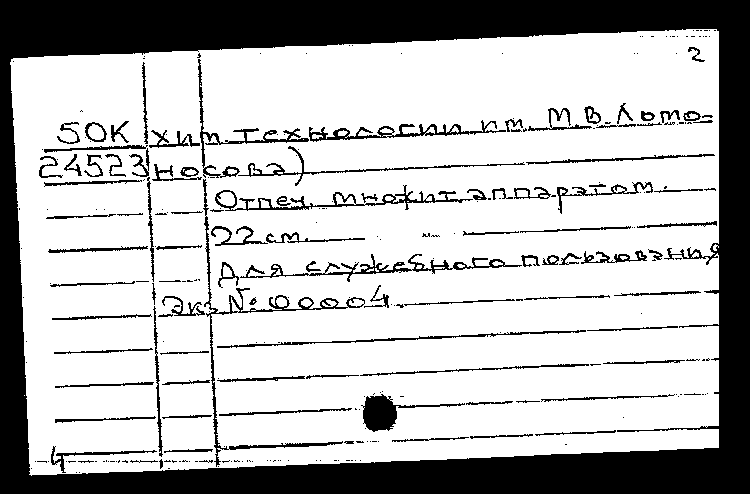 2
50К хим. технологии им. М.В. Ломо-
24523 носова)
Отпеч. множит. аппаратом.
22 см.
Для служебного пользования
Экз. №: 00004.
4